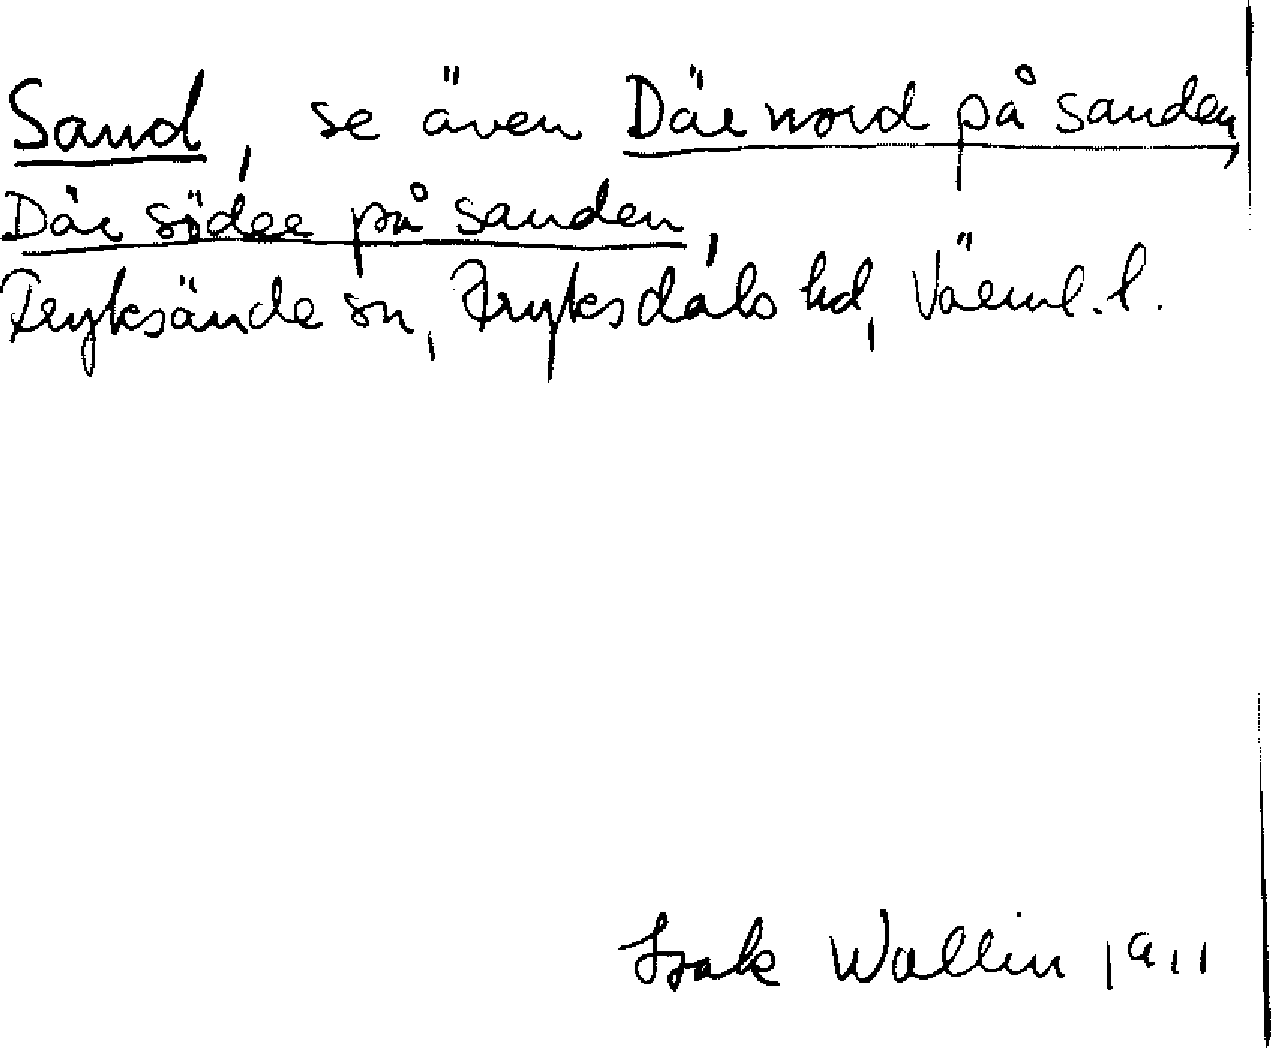 Sand, se även Där nord på sanden,
Där söder på sanden,
Fryksände sn, Fryksdals hd, Värml. l.
Isak Wallin 1911